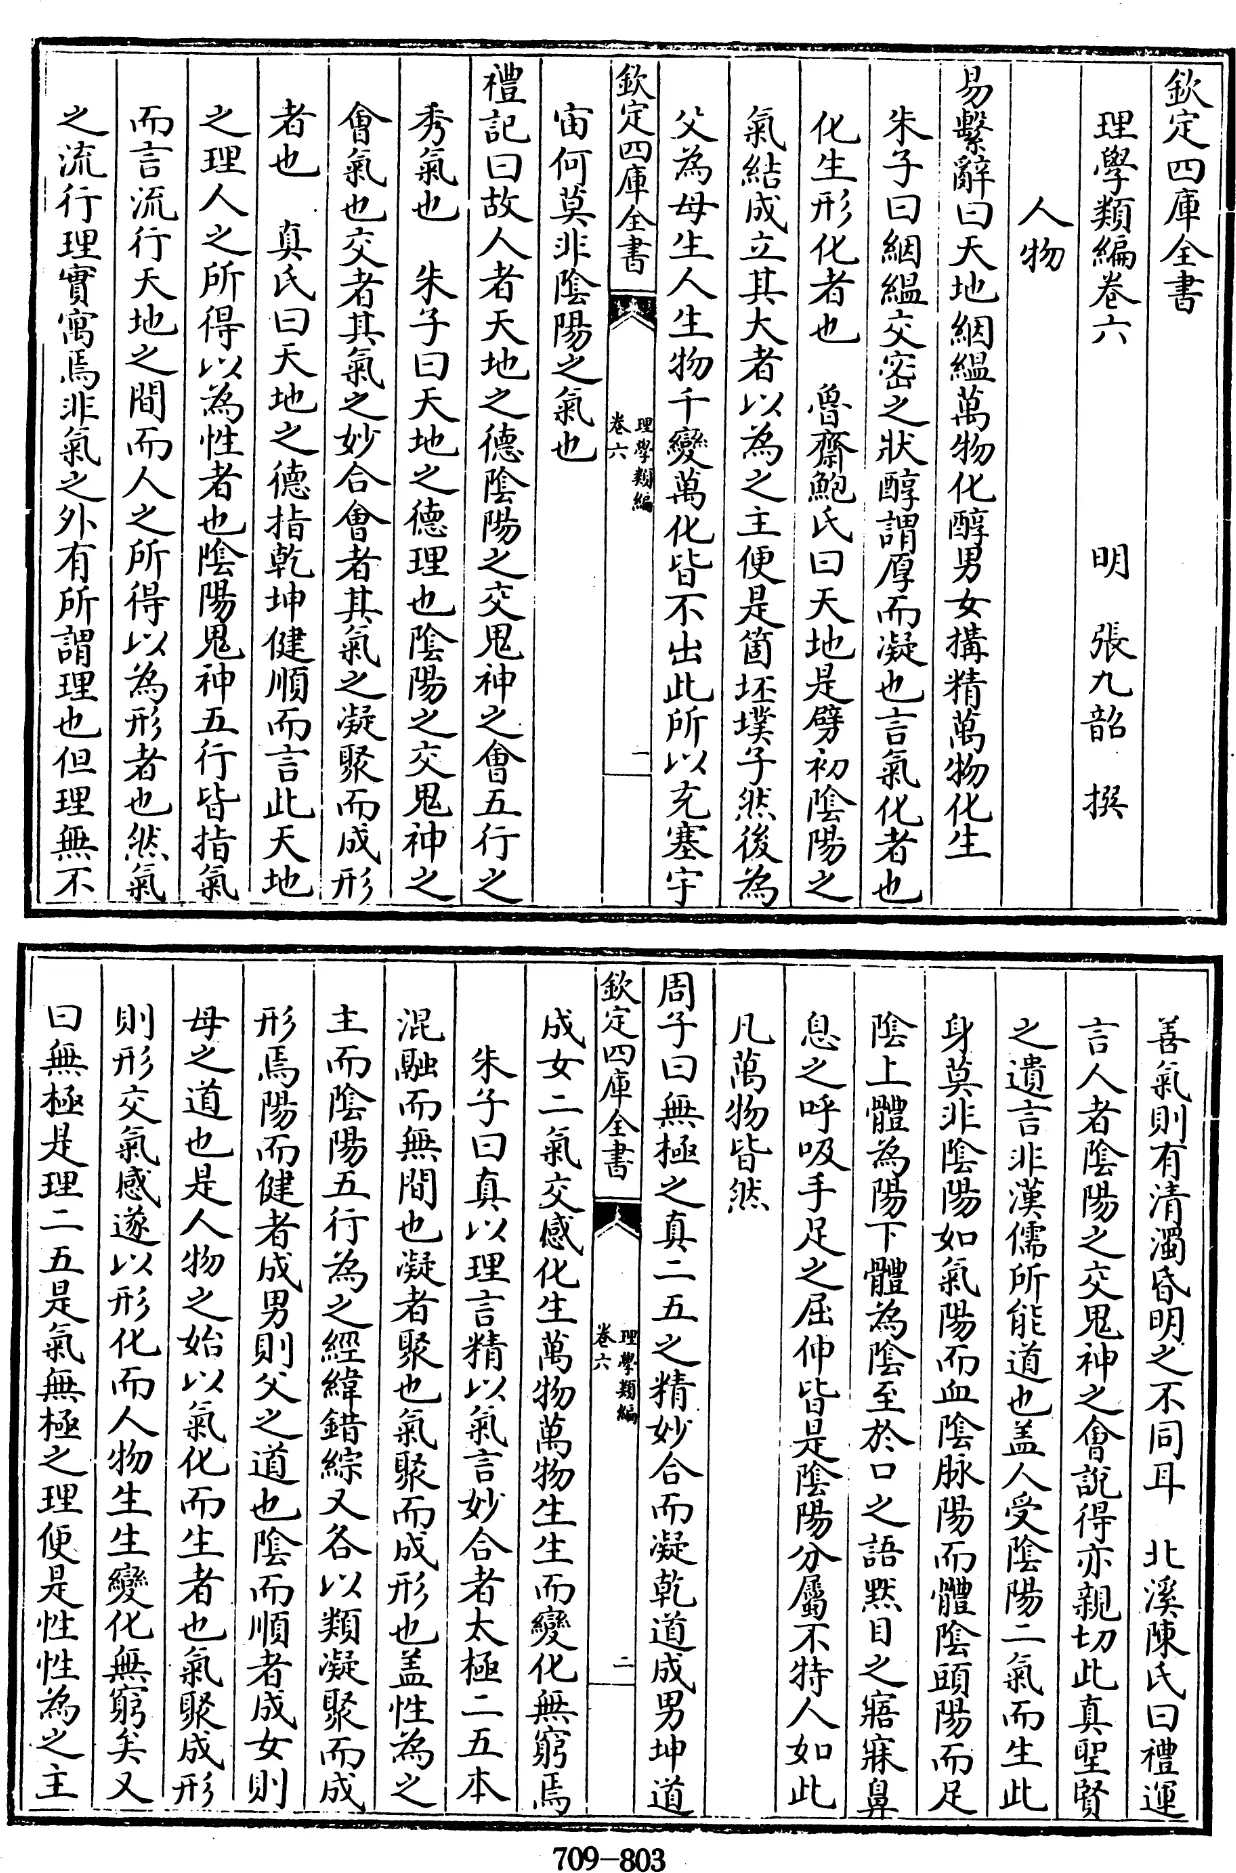 欽定四庫全書
理學類編卷六　　明　張九韶　撰
人物
易繫辭曰天地絪縕萬物化醇男女搆精萬物化生
朱子曰絪縕交密之狀醇謂厚而凝也言氣化者也
化生形化者也　魯齋鮑氏曰天地是劈初陰陽之
氣結成立其大者以為之主便是箇坯墣子然後為
父為母生人生物千變萬化皆不出此所以充塞宇
欽定四庫全書
理學類編
卷六
一
宙何莫非陰陽之氣也
禮記曰故人者天地之德陰陽之交鬼神之會五行之
秀氣也　朱子曰天地之德理也陰陽之交鬼神之
會氣也交者其氣之妙合會者其氣之凝聚而成形
者也　真氏曰天地之德指乾坤健順而言此天地
之理人之所得以為性者也陰陽鬼神五行皆指氣
而言流行天地之間而人之所得以為形者也然氣
之流行理實寓焉非氣之外有所謂理也但理無不
善氣則有清濁昏明之不同耳　北溪陳氏曰禮運
言人者陰陽之交鬼神之會說得亦親切此真聖賢
之遺言非漢儒所能道也盖人受陰陽二氣而生此
身莫非陰陽如氣陽而血陰脉陽而體陰頭陽而足
陰上體為陽下體為陰至於口之語默目之寤寐鼻
息之呼吸手足之屈伸皆是陰陽分屬不特人如此
凡萬物皆然
周子曰無極之真二五之精妙合而凝乾道成男坤道
欽定四庫全書
理學類編
卷六
二
成女二氣交感化生萬物萬物生生而變化無窮焉
朱子曰真以理言精以氣言妙合者太極二五本
混融而無間也凝者聚也氣聚而成形也盖性為之
主而陰陽五行為之經緯錯綜又各以類凝聚而成
形焉陽而健者成男則父之道也陰而順者成女則
母之道也是人物之始以氣化而生者也氣聚成形
則形交氣感遂以形化而人物生生變化無窮矣又
曰無極是理二五是氣無極之理便是性性為之主
709-803